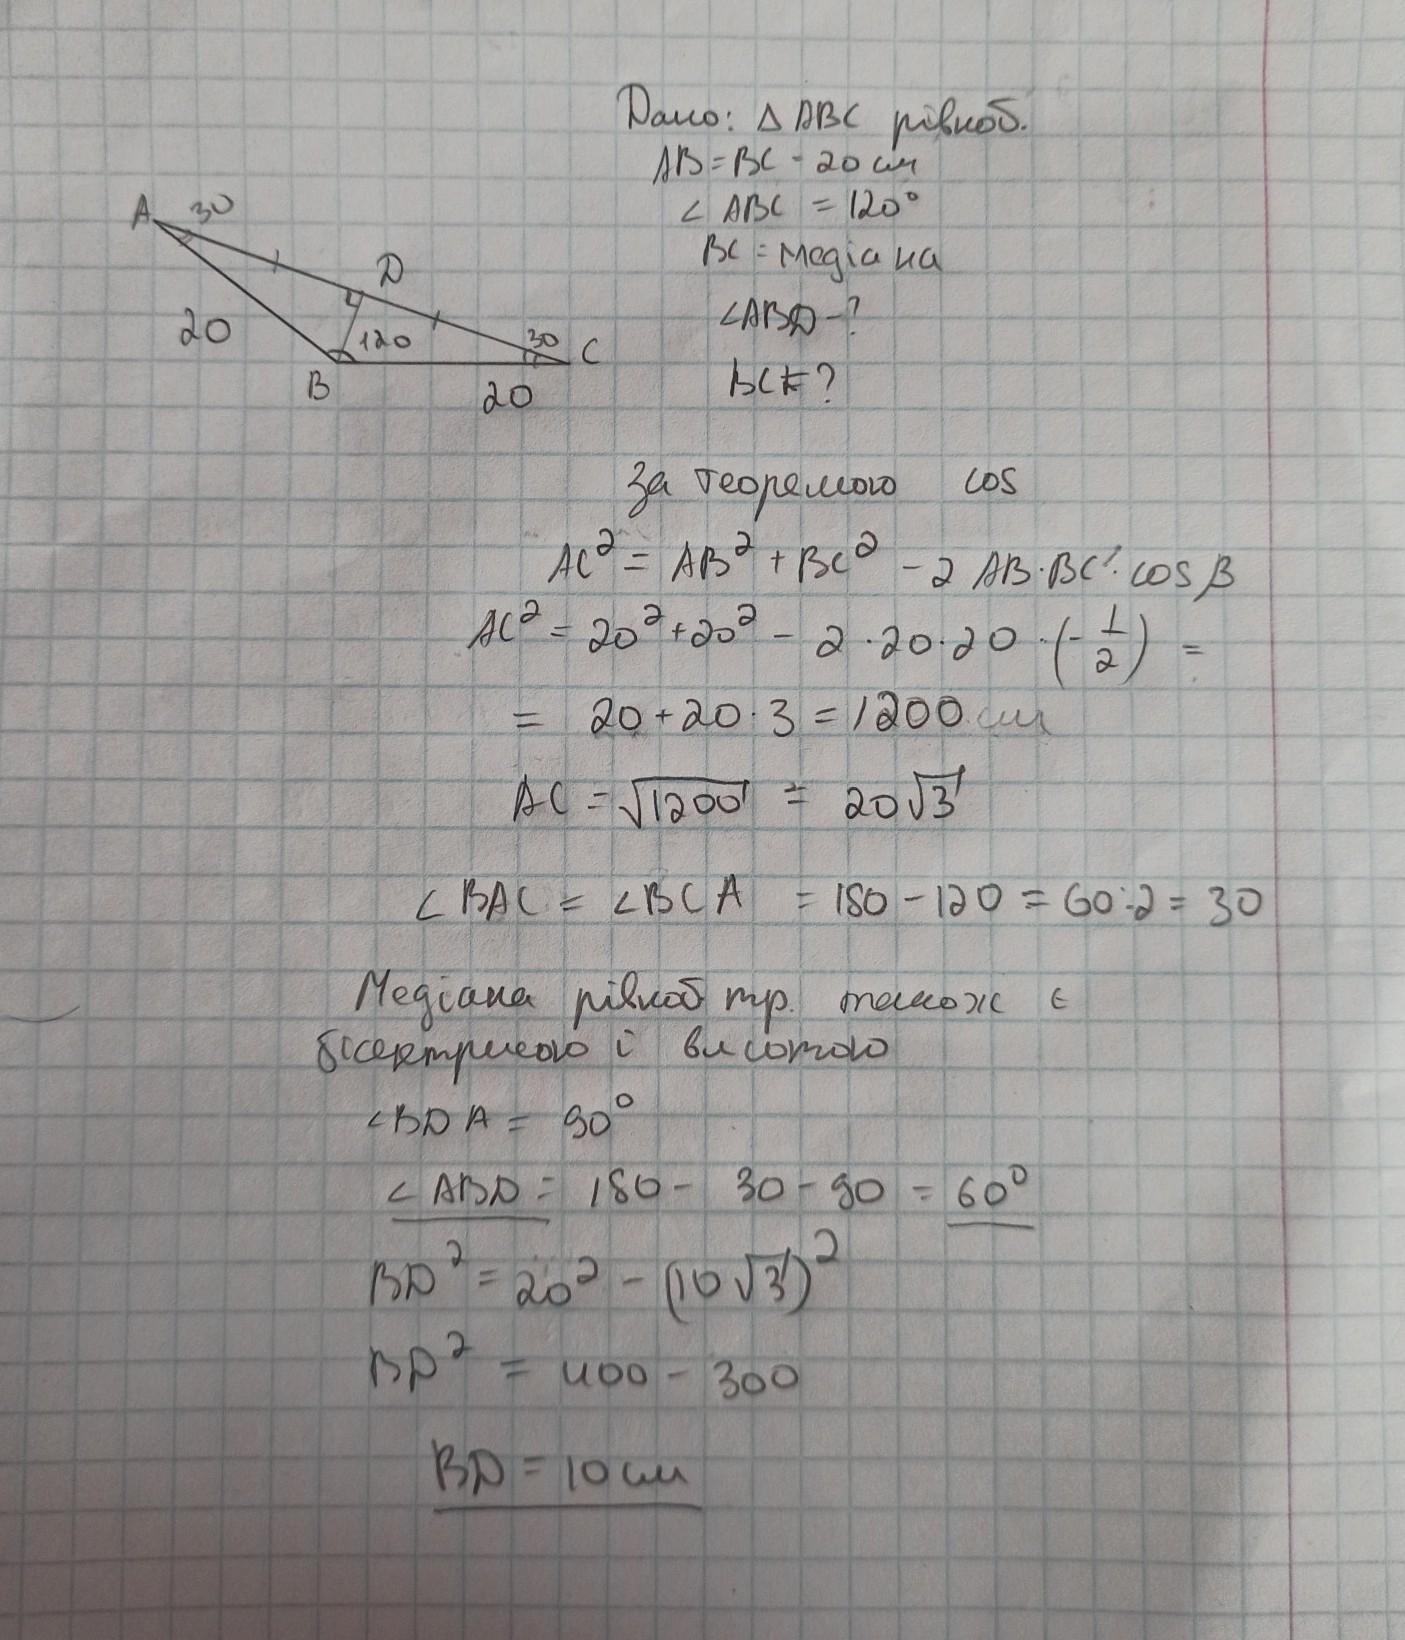 Дано: Δ ABC рівноб.
AB = BC - 20 см
∠ ABC = 120°
BC = медіана
∠ABD - ?
BC = ?
A 30
D
20
120
30 C
B
20
За теоремою cos
AC² = AB² + BC² - 2 AB·BC·cos β
AC² = 20² + 20² - 2·20·20·(-1/2) =
= 20 + 20·3 = 1200 см
AC = √1200 = 20√3
∠BAC = ∠BCA = 180 - 120 = 60:2 = 30
Медіана рівноб тр. також є
бісектрисою і висотою
∠BDA = 90°
∠ABD = 180 - 30 - 90 = 60°
BD² = 20² - (10√3)²
BD² = 400 - 300
BD = 10 см